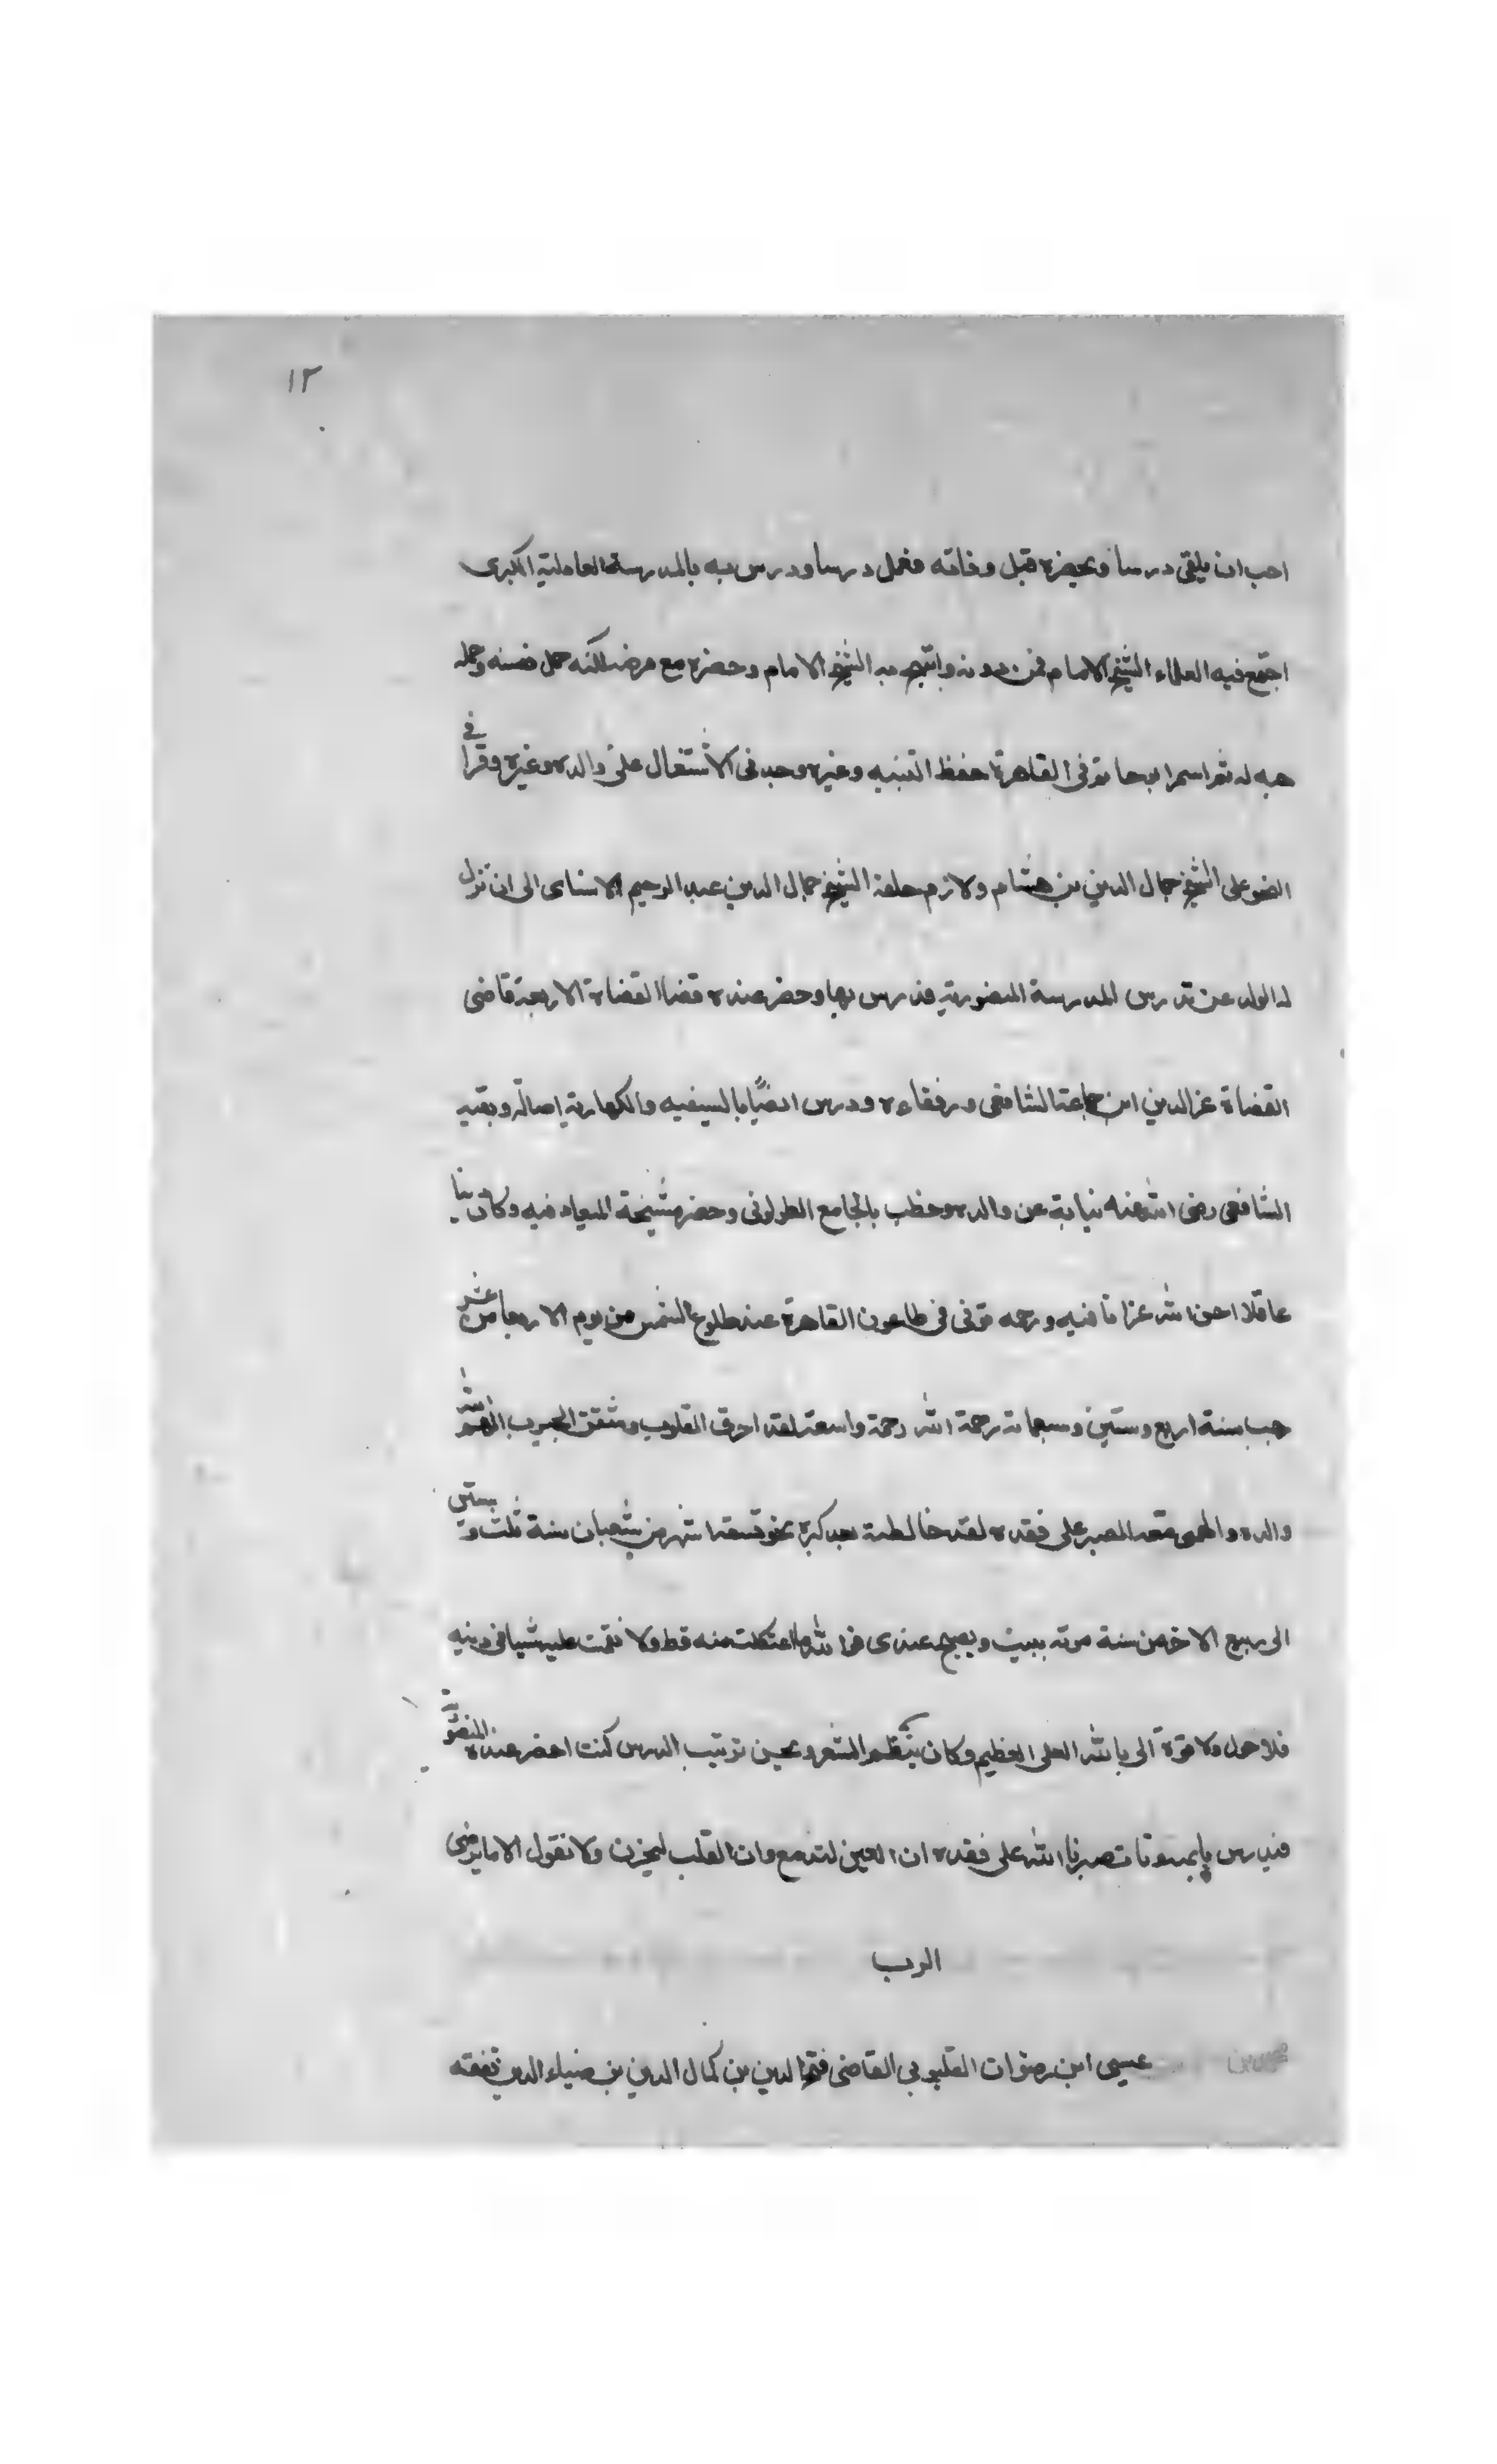 ١٢
احب ان يلقى درسا ويحضره قبل وفاته فعمل درسا ودرس به بالمدرسة العادلية الكبرى
اجتمع فيه العلماء الشيخ الامام فمن دونه وابتهج به الشيخ الامام وحضره مع مرضه لكنه حمل نفسه وحمله
حبه له ثم استمرا بوحا توفى القاهرة حفظ التنبيه وغيره وجد فى الاشتغال على والده وغيره وقرا فى
النحو على الشيخ جمال الدين بن هشام ولازم حلقة الشيخ جمال الدين عبد الرحيم الاسناى الى ان نزل
له الولد عن تدرس المدرسة المنصورية فدرس بها وحضر عنده قضا القضاة الاربعة قاضى
القضاة عز الدين ابن جماعة الشافعى ورفقاءه ودرس ايضًا بالسيفيه والكهارية اصالة وبقيه
الشافعى رضى الله عنه نيابة عن والده وخطب بالجامع الطولونى وحضر مشيخة الميعاد فيه وكان دينا
عاقلا احسن الله عزانا فيه ورحمه توفى فى طاعون القاهرة عند طلوع الشمس من يوم الاربعا من عشر
حب سنة اربع وستين وسبعمائة رحمة الله رحمة واسعة لقد احرق القلوب وشقق الجيوب الهم الله
والده والهمو تعد الصبر على فقده لقد خالطته بعد كبره نحو تسعة اشهر من شعبان سنة ثلث وستين
الى ربيع الاخر من سنة موته يبيت ويصبح عندى فوالله ما اعتكلت منه قط ولا نقمت عليه شيا فى دينه
فلا حول ولا قوة الى بالله العلى العظيم وكان ينظم الشعر ويحسن ترتيب الدرس كنت احضر عنده المنصورية
فيدرس تصبرنا الله على فقده ان العين لتدمع وان القلب ليحزن ولا نقول الا ما يرضى
الرب
عيسى ابن رضوان القليوبى القاضى فتح الدين بن كمال الدين بن ضياء الدين تفقه